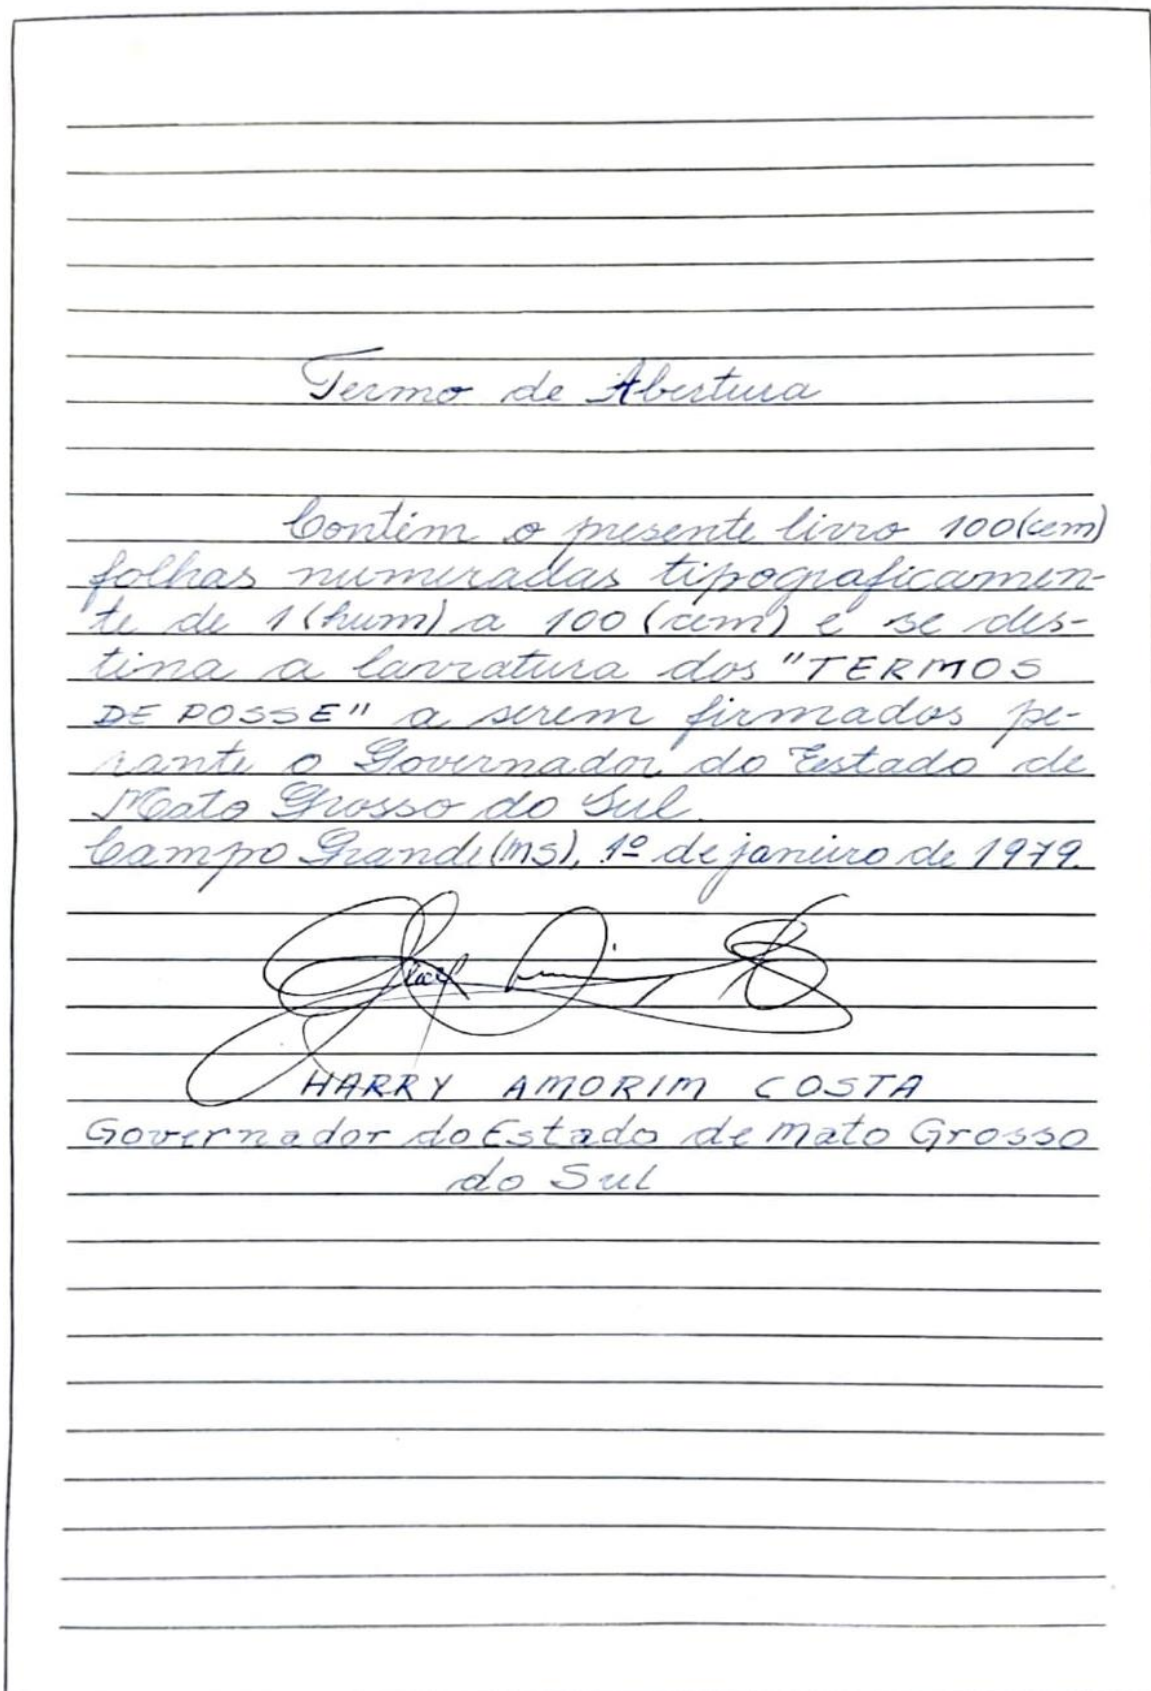 Termo de Abertura
Contém o presente livro 100(cem)
folhas numeradas tipograficamen-
te de 1 (hum) a 100 (cem) e se des-
tina a lavratura dos "TERMOS
DE POSSE" a serem firmados pe-
rante o Governador do Estado de
Mato Grosso do Sul.
Campo Grande (MS), 1º de janeiro de 1979.
HARRY AMORIM COSTA
Governador do Estado de Mato Grosso
do Sul